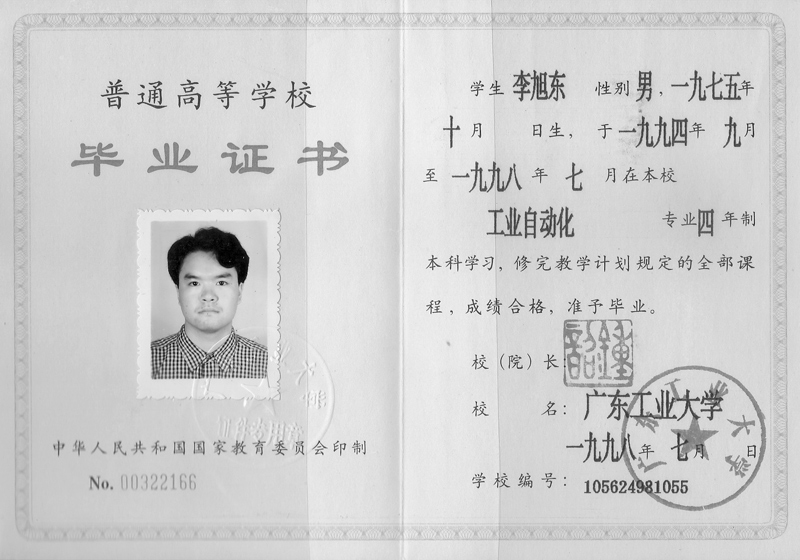 普通高等学校
毕业证书
中华人民共和国国家教育委员会印制
No. 00322166
学生 李旭东 性别 男，一九七五年
十月 日生，于一九九四年 九月
至 一九九八 年 七 月在本校
工业自动化 专业四年制
本科学习，修完教学计划规定的全部课
程，成绩合格，准予毕业。
校（院）长：
校 名：广东工业大学
一九九八年 七月 日
学校编号：105624981055
广东工业大学